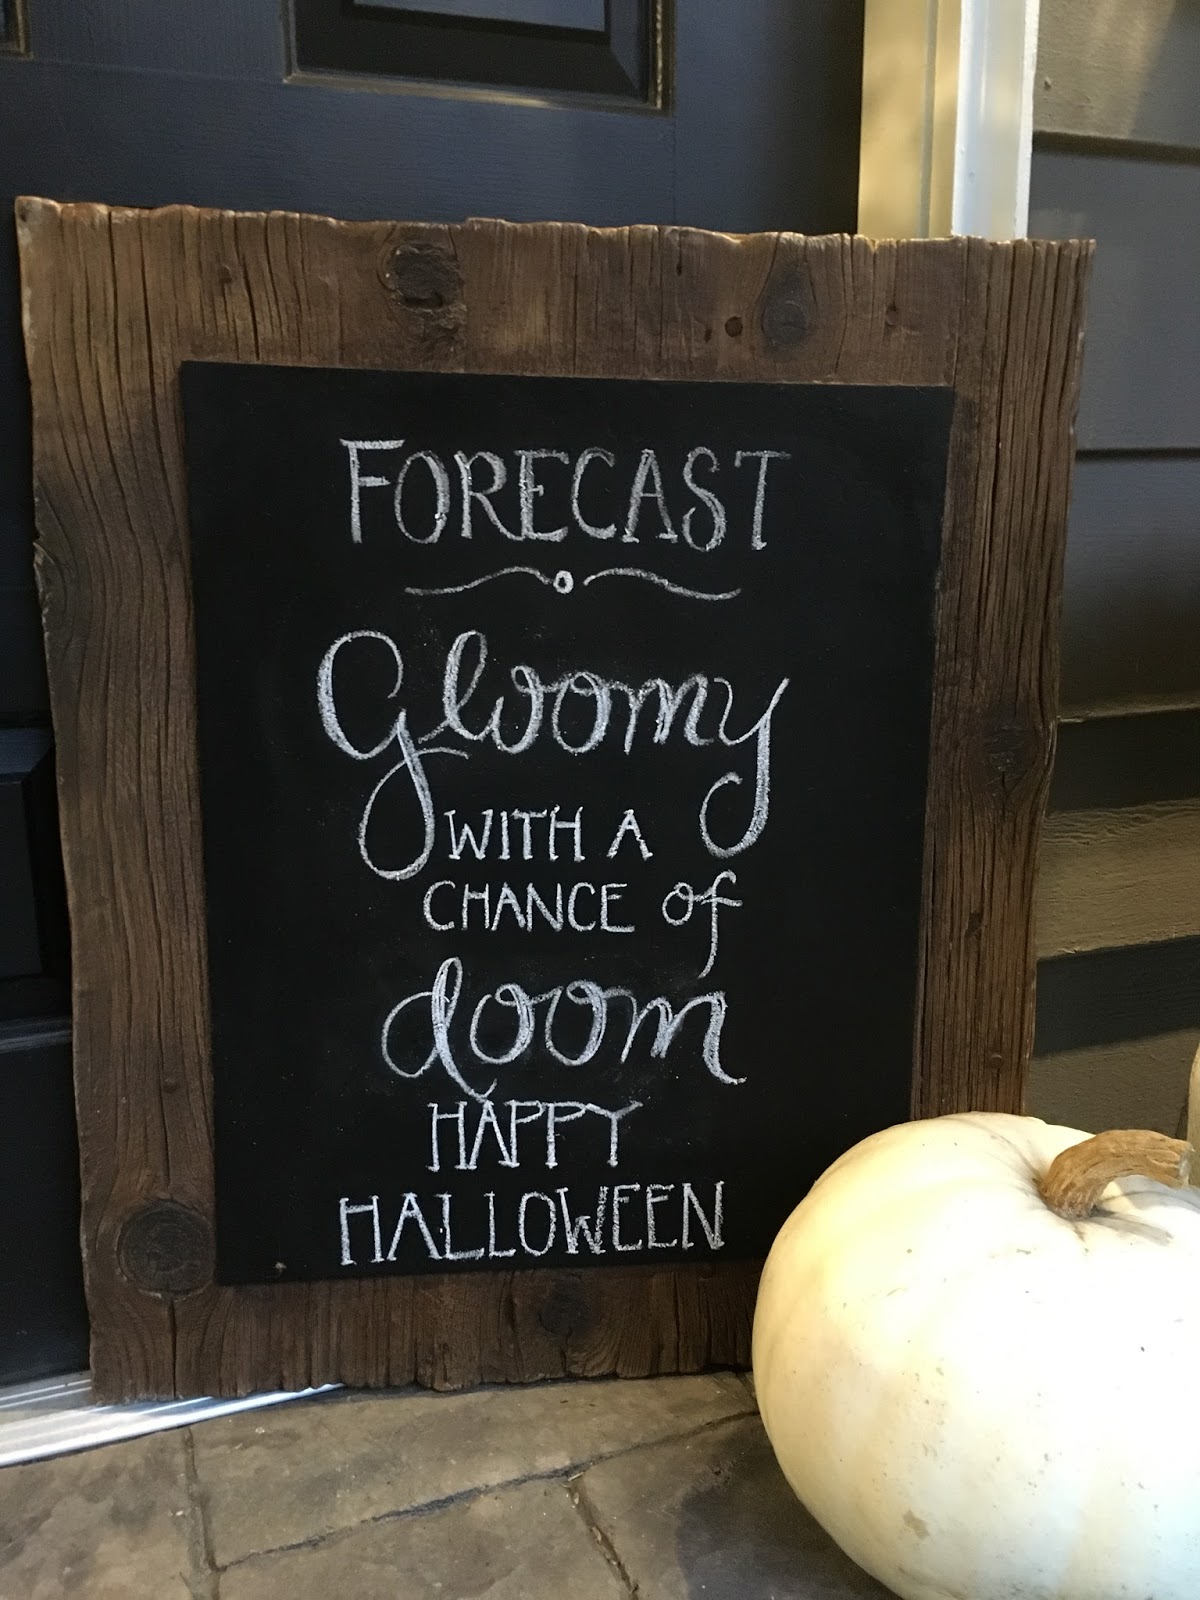 FORECAST
Gloomy
WITH A
CHANCE of
doom
HAPPY
HALLOWEEN